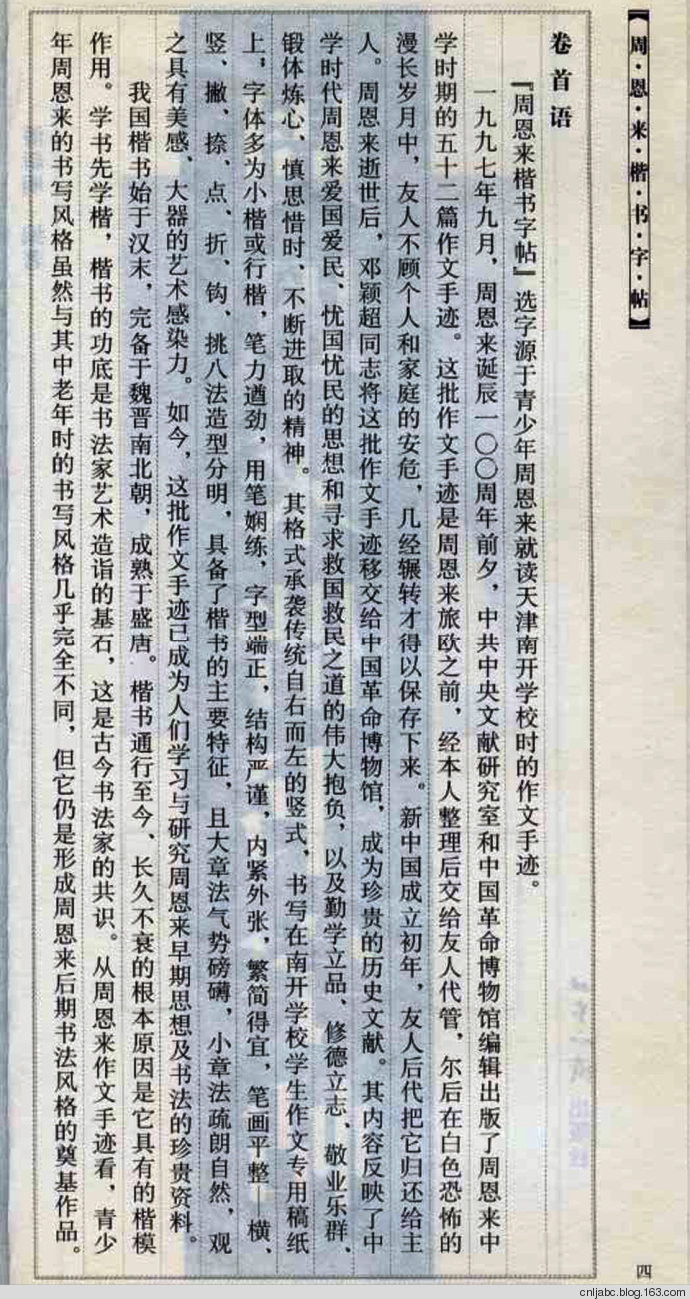 【周·恩·来·楷·书·字·帖】
卷首语
『周恩来楷书字帖』选字源于青少年周恩来就读天津南开学校时的作文手迹。
一九九七年九月，周恩来诞辰一〇〇周年前夕，中共中央文献研究室和中国革命博物馆编辑出版了周恩来中
学时期的五十二篇作文手迹。这批作文手迹是周恩来旅欧之前，经本人整理后交给友人代管，尔后在白色恐怖的
漫长岁月中，友人不顾个人和家庭的安危，几经辗转才得以保存下来。新中国成立初年，友人后代把它归还给主
人。周恩来逝世后，邓颖超同志将这批作文手迹移交给中国革命博物馆，成为珍贵的历史文献。其内容反映了中
学时代周恩来爱国爱民、忧国忧民的思想和寻求救国救民之道的伟大抱负，以及勤学立品、修德立志、敬业乐群、
锻体炼心、慎思惜时、不断进取的精神。其格式承袭传统自右而左的竖式，书写在南开学校学生作文专用稿纸
上；字体多为小楷或行楷，笔力遒劲，用笔娴练，字型端正，结构严谨，内紧外张，繁简得宜，笔画平整—横、
竖、撇、捺、点、折、钩、挑八法造型分明，具备了楷书的主要特征，且大章法气势磅礴，小章法疏朗自然，观
之具有美感、大器的艺术感染力。如今，这批作文手迹已成为人们学习与研究周恩来早期思想及书法的珍贵资料。
我国楷书始于汉末，完备于魏晋南北朝，成熟于盛唐。楷书通行至今、长久不衰的根本原因是它具有的楷模
作用。学书先学楷，楷书的功底是书法家艺术造诣的基石，这是古今书法家的共识。从周恩来作文手迹看，青少
年周恩来的书写风格虽然与其中老年时的书写风格几乎完全不同，但它仍是形成周恩来后期书法风格的奠基作品。
四
cnljabc.blog.163.com